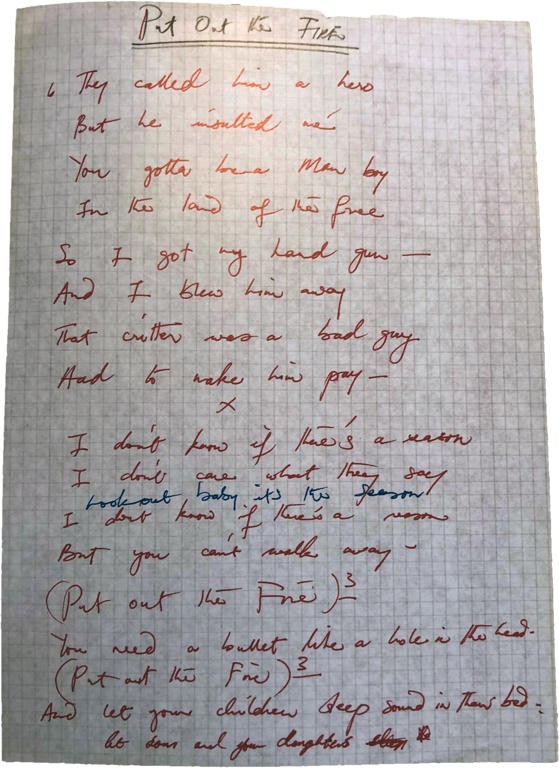 Put Out the Fire
They called him a hero
But he insulted me
You gotta be a Man boy
In the land of the free
So I got my hand gun —
And I blew him away
That critter was a bad guy
Had to make him pay —
x
I don't know if there's a reason
I don't care what they say
Look out baby it's the season
I don't know if there's a reason
But you can't walk away -
(Put out the Fire)3
You need a bullet like a hole in the head -
(Put out the Fire)3
And let your children sleep sound in their bed -
let sons and your daughters